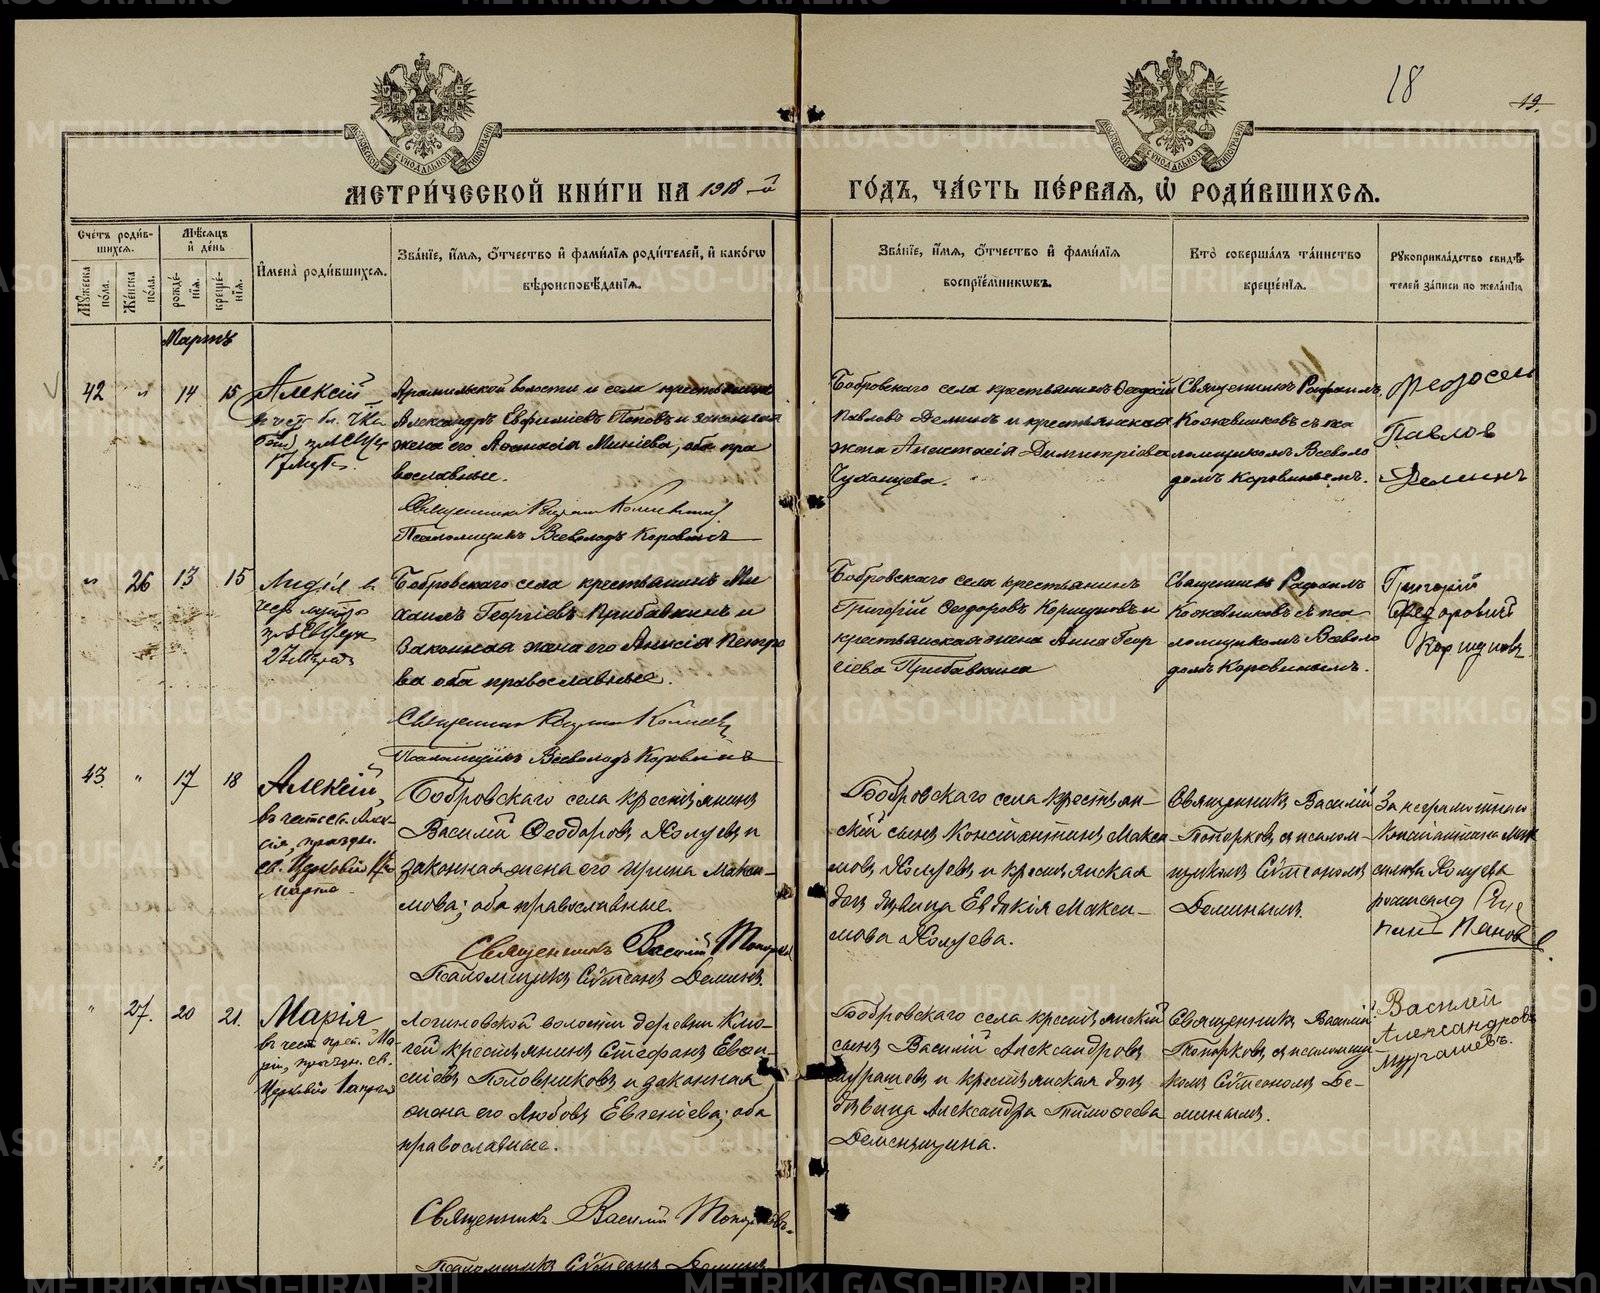 18
19.
МЕТРИ́ЧЕСКОЙ КНИ́ГИ НА 1918-й ГО́ДЪ, ЧА́СТЬ ПЕ́РВАЯ, Ѡ҆ РОДИ́ВШИХСѦ.
Сче́тъ роди́вшихсѧ.
Мѣ́сѧцъ и҆ де́нь
Му́жеска по́ла.
Же́нска по́ла.
рожде́нїѧ.
креще́нїѧ.
И҆мена̀ роди́вшихсѧ.
Зва́нїе, и҆́мѧ, ѻ҆́тчество и҆ фами́лїѧ роди́телей, и҆ како́гѡ
вѣроисповѣ́данїѧ.
Зва́нїе, и҆́мѧ, ѻ҆́тчество и҆ фами́лїѧ
воспрїе́мникѡвъ.
Кто̀ соверша́лъ та́инство
креще́нїѧ.
Рукоприкла́дство свидѣ́телей за́писи по жела́нїю
Мартъ
42 " 14 15
Алексій
Арамильской волости и села крестьянинъ
Александръ Евфиміевъ Поповъ и законная
жена его Аѳанасія Миніева, оба пра
вославные.
Псаломщикъ Всеволодъ Коровинъ
Бобровскаго села крестьянинъ Ѳеодосій
Павловъ Деминъ и крестьянская
жена Анастасія Димитріева
Священникъ Рафаилъ
Кожевниковъ съ пса
ломщикомъ Всеволо
домъ Коровинымъ.
Федосей
Павлов
Деминъ
" 26 13 15
Лидія в
Бобровскаго села крестьянинъ Ми
хаилъ Георгіевъ Прибавкинъ и
законная жена его Анисія Петро
ва оба православные.
Псаломщикъ Всеволодъ Коровинъ
Бобровскаго села крестьянинъ
Григорій Ѳеодоровъ Коршуновъ и
крестьянская жена Анна Геор
гіева Прибавкина
Священникъ Рафаилъ
Кожевниковъ съ пса
ломщикомъ Всеволо
домъ Коровинымъ.
Григорій
Федоровит
Коршуновъ
43. " 17 18
Алексій,
въ честь св. Алек-
сія, праздн.
св. Церковію 17-го
марта.
Бобровскаго села крестьянинъ
Василій Ѳеодоровъ Холуевъ и
законная жена его Ирина Макси-
мова; оба православные.
Священникъ Василій Топорков
Псаломщикъ Сѵмеонъ Деминъ.
Бобровскаго села крестьян-
скій сынъ Константинъ Макси
мовъ Холуевъ и крестьянская
дочь дѣвица Евдокія Макси-
мова Холуева.
Священникъ Василій
Топорковъ съ псалом-
щикомъ Сѵмеономъ
Деминымъ.
За неграмотнаго
Константина Мак
симова Холуева
" 27. 20 21.
Марія
въ честь преп. Ма-
ріи, праздн. св.
Церковію 1 апрѣля
Логиновской волости деревни Клю-
чей крестьянинъ Стефанъ Евѳи-
міевъ Половниковъ и законная
жена его Любовь Евгеніева; оба
православные.
Священникъ Василій Топорковъ.
Псаломщикъ Сѵмеонъ Деминъ
Бобровскаго села крестьянскій
сынъ Василій Александровъ
Мурашевъ и крестьянская дочь
дѣвица Александра Тимоѳеева
Деменьшина.
Священникъ Василій
Топорковъ съ псаломщи
комъ Сѵмеономъ Де-
минымъ.
Василей
Александровъ
Мурашевъ.